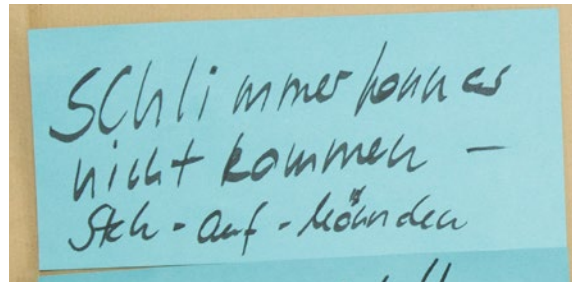 Schlimmer kann es
nicht kommen –
Steh-auf-Männchen